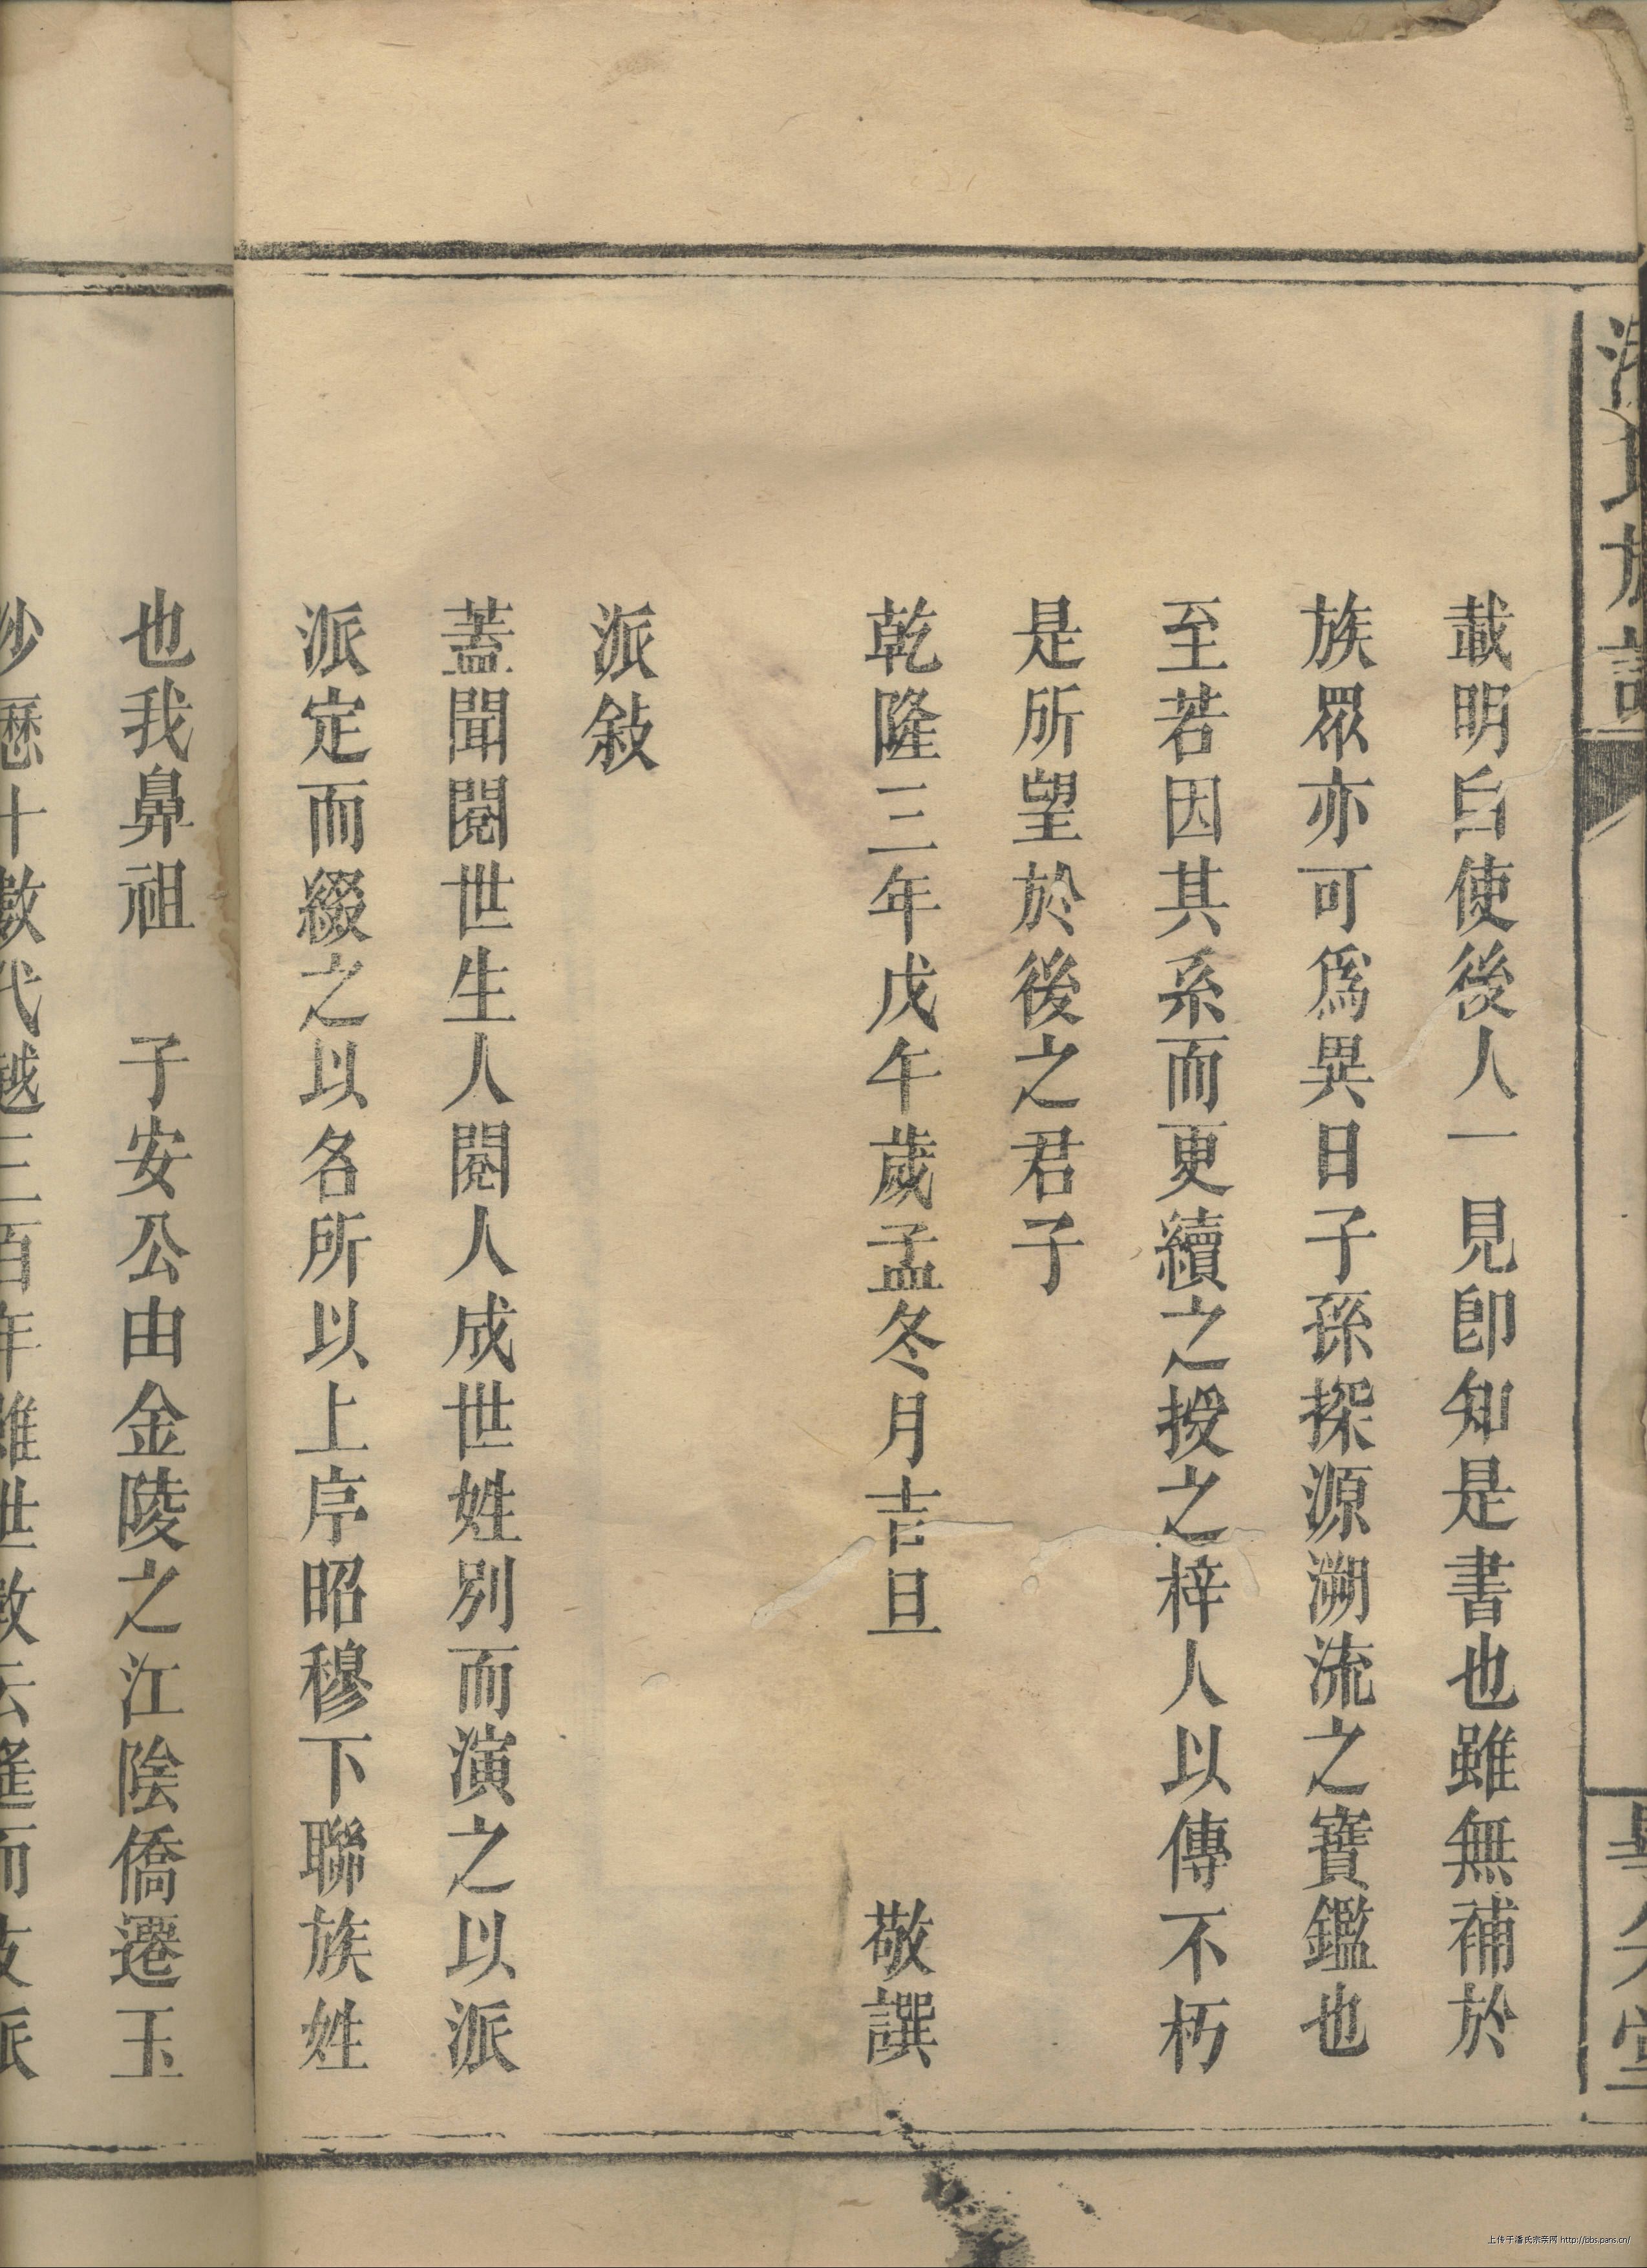 潘氏族譜
堂
載明白使後人一見卽知是書也雖無補於
族眾亦可爲異日子孫探源溯流之寶鑑也
至若因其系而更續之授之梓人以傳不朽
是所望於後之君子
乾隆三年戊午歲孟冬月吉旦 敬譔
派敍
蓋聞閱世生人閱人成世姓別而演之以派
派定而綴之以名所以上序昭穆下聯族姓
也我鼻祖 子安公由金陵之江陰僑遷玉
沙歷十數代越三百年雖世數云遙而支派
上传于潘氏宗亲网 http://bbs.pans.cn/